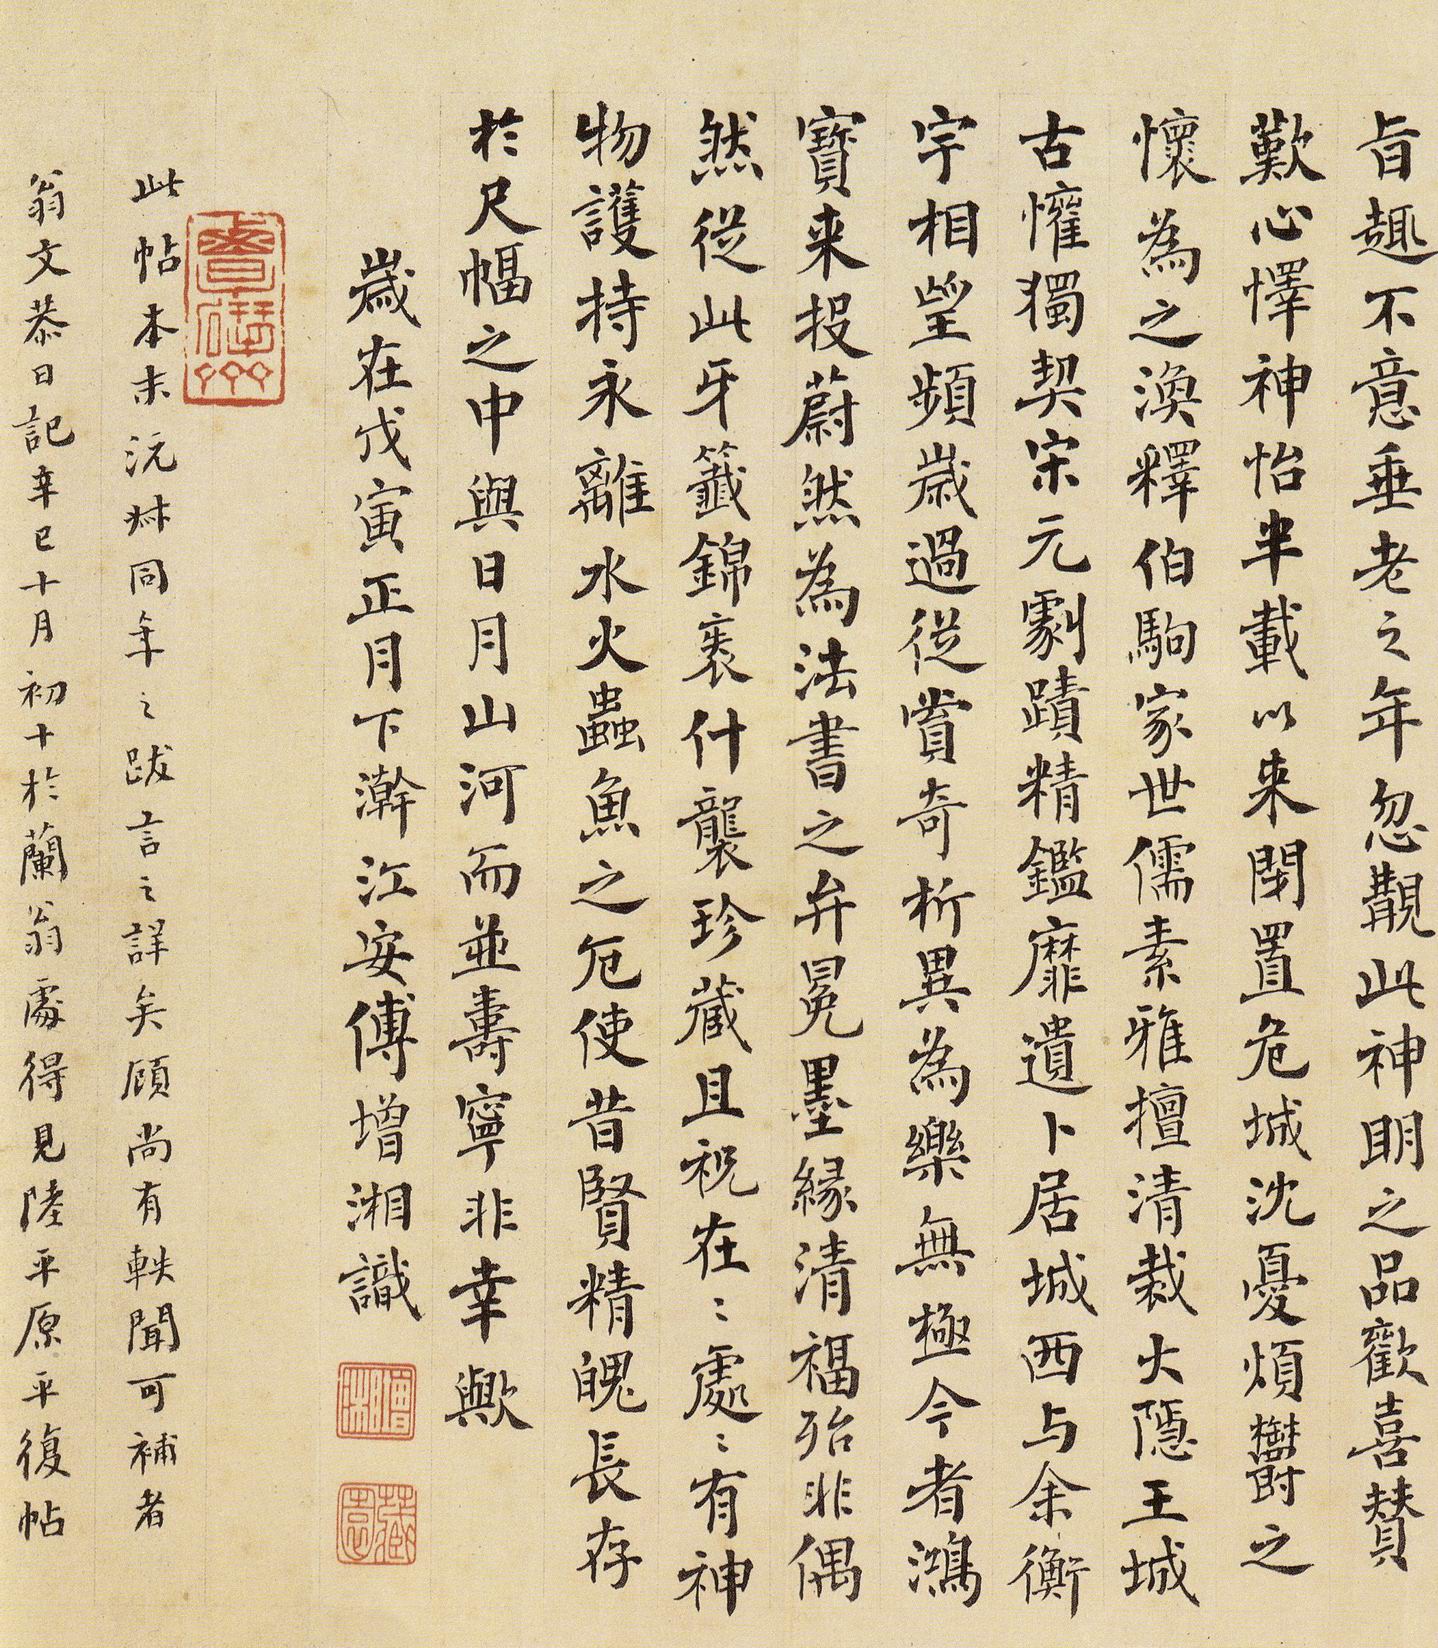 旨趣不意垂老之年忽覯此神明之品歡喜贊
歎心懌神怡半載以来閉置危城沈憂煩鬱之
懷為之渙釋伯駒家世儒素雅擅清裁大隱王城
古懽獨契宋元劇蹟精鑑靡遺卜居城西与余衡
宇相望頻歲過從賞奇析異為樂無極今者鴻
寳来投蔚然為法書之弁冕墨緣清福殆非偶
然從此牙籤錦裘什襲珍藏且祝在〻處〻有神
物護持永離水火蟲魚之厄使昔賢精魄長存
於尺幅之中與日月山河而並壽寧非幸歟
歲在戊寅正月下澣江安傅增湘識
增湘
藏園
此帖本末沅叔同年之跋言之詳矣顧尚有軼聞可補者
翁文恭日記辛巳十月初十於蘭翁處得見陸平原平復帖